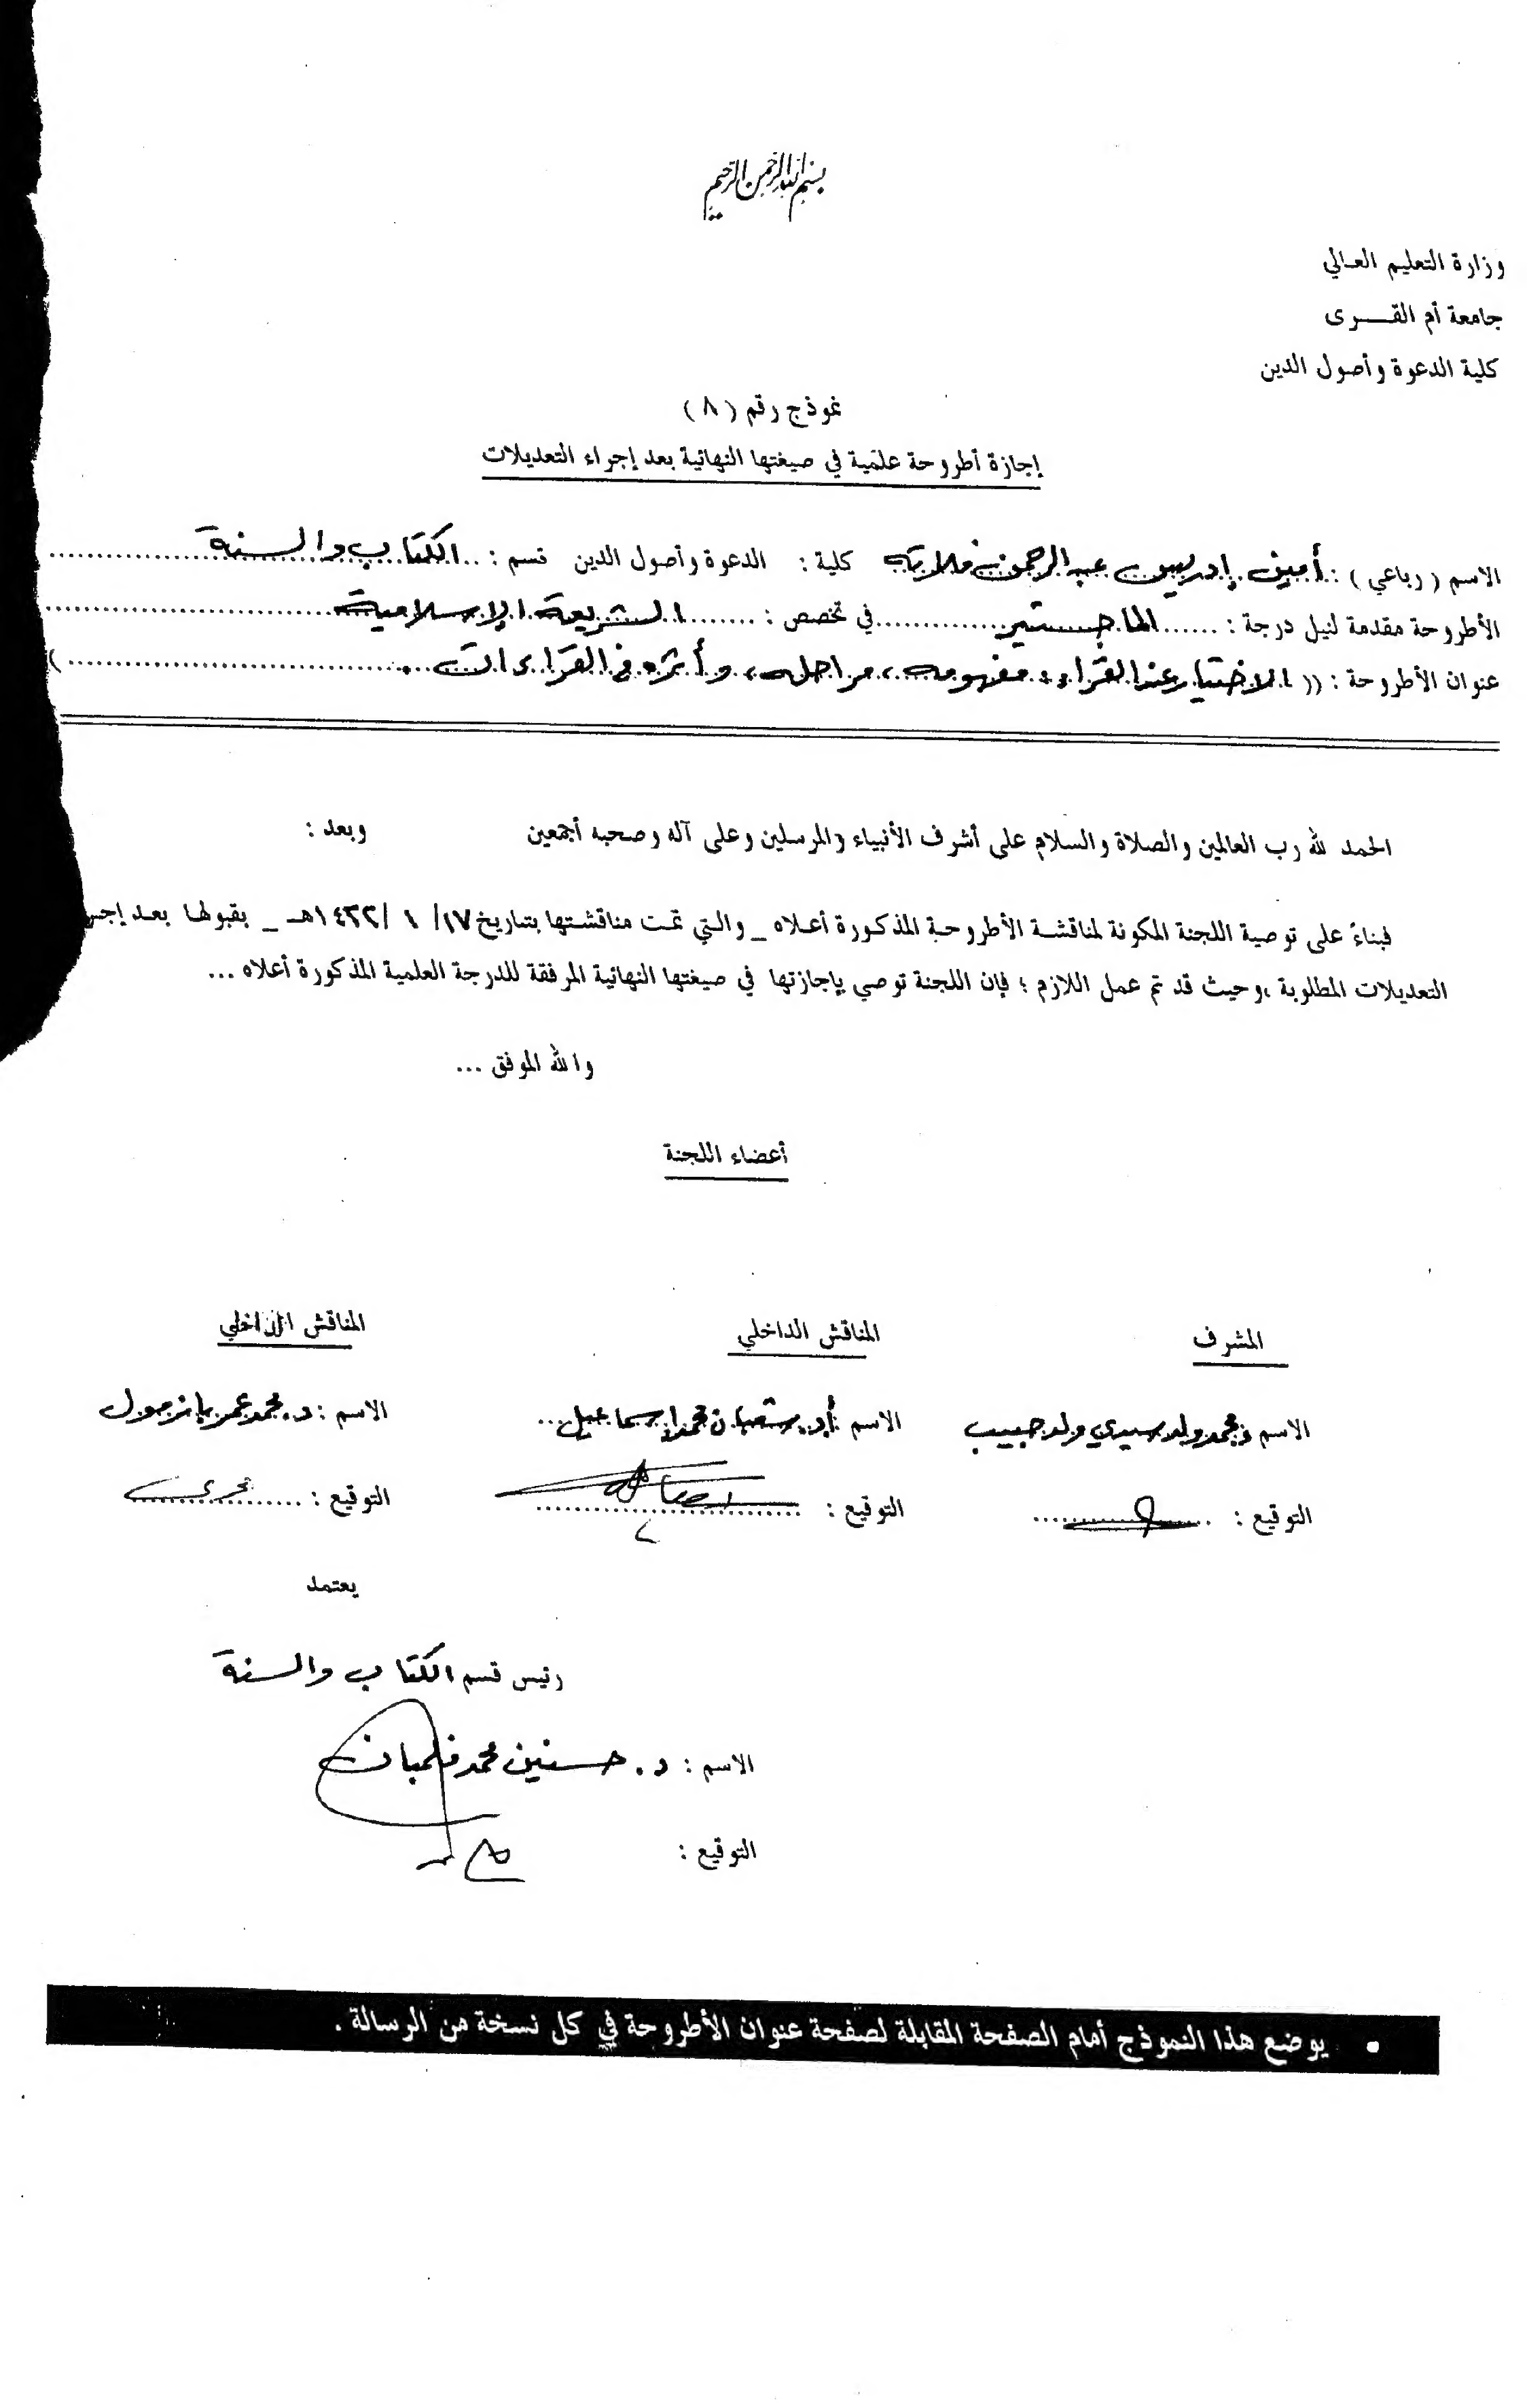 بسم الله الرحمن الرحيم
وزارة التعليم العالي
جامعة أم القــــرى
كلية الدعوة وأصول الدين
نموذج رقم ( ٨ )
إجازة أطروحة علمية في صيغتها النهائية بعد إجراء التعديلات
الاسم ( رباعي ) : أمين إدريس عبد الرحمن فلاته كلية : الدعوة وأصول الدين قسم : الكتاب والسنة
الأطروحة مقدمة لنيل درجة : الماجستير في تخصص : الشريعة الإسلامية
عنوان الأطروحة : (( الاختيار عند القراء ، مفهومه ، مراحله ، وأثره في القراءات . )
الحمد لله رب العالمين والصلاة والسلام على أشرف الأنبياء والمرسلين وعلى آله وصحبه أجمعين وبعد :
فبناءً على توصية اللجنة المكونة لمناقشة الأطروحة المذكورة أعلاه _ والتي تمت مناقشتها بتاريخ ١٧/ ١ /١٤٢٢هـ _ بقبولها بعد
التعديلات المطلوبة ،وحيث قد تم عمل اللازم ؛ فإن اللجنة توصي بإجازتها في صيغتها النهائية المرفقة للدرجة العلمية المذكورة أعلاه ...
والله الموفق ...
أعضاء اللجنة
المشرف المناقش الداخلي المناقش الداخلي
الاسم د محمد ولد سيدي ولد حبيب الاسم : أ.د. شعبان محمد إسماعيل الاسم : د. محمد عمر بازمول
التوقيع : التوقيع : التوقيع :
يعتمد
رئيس قسم الكتاب والسنة
الاسم : د. حسنين محمد فلمبان
التوقيع :
▪ يوضع هذا النموذج أمام الصفحة المقابلة لصفحة عنوان الأطروحة في كل نسخة من الرسالة .